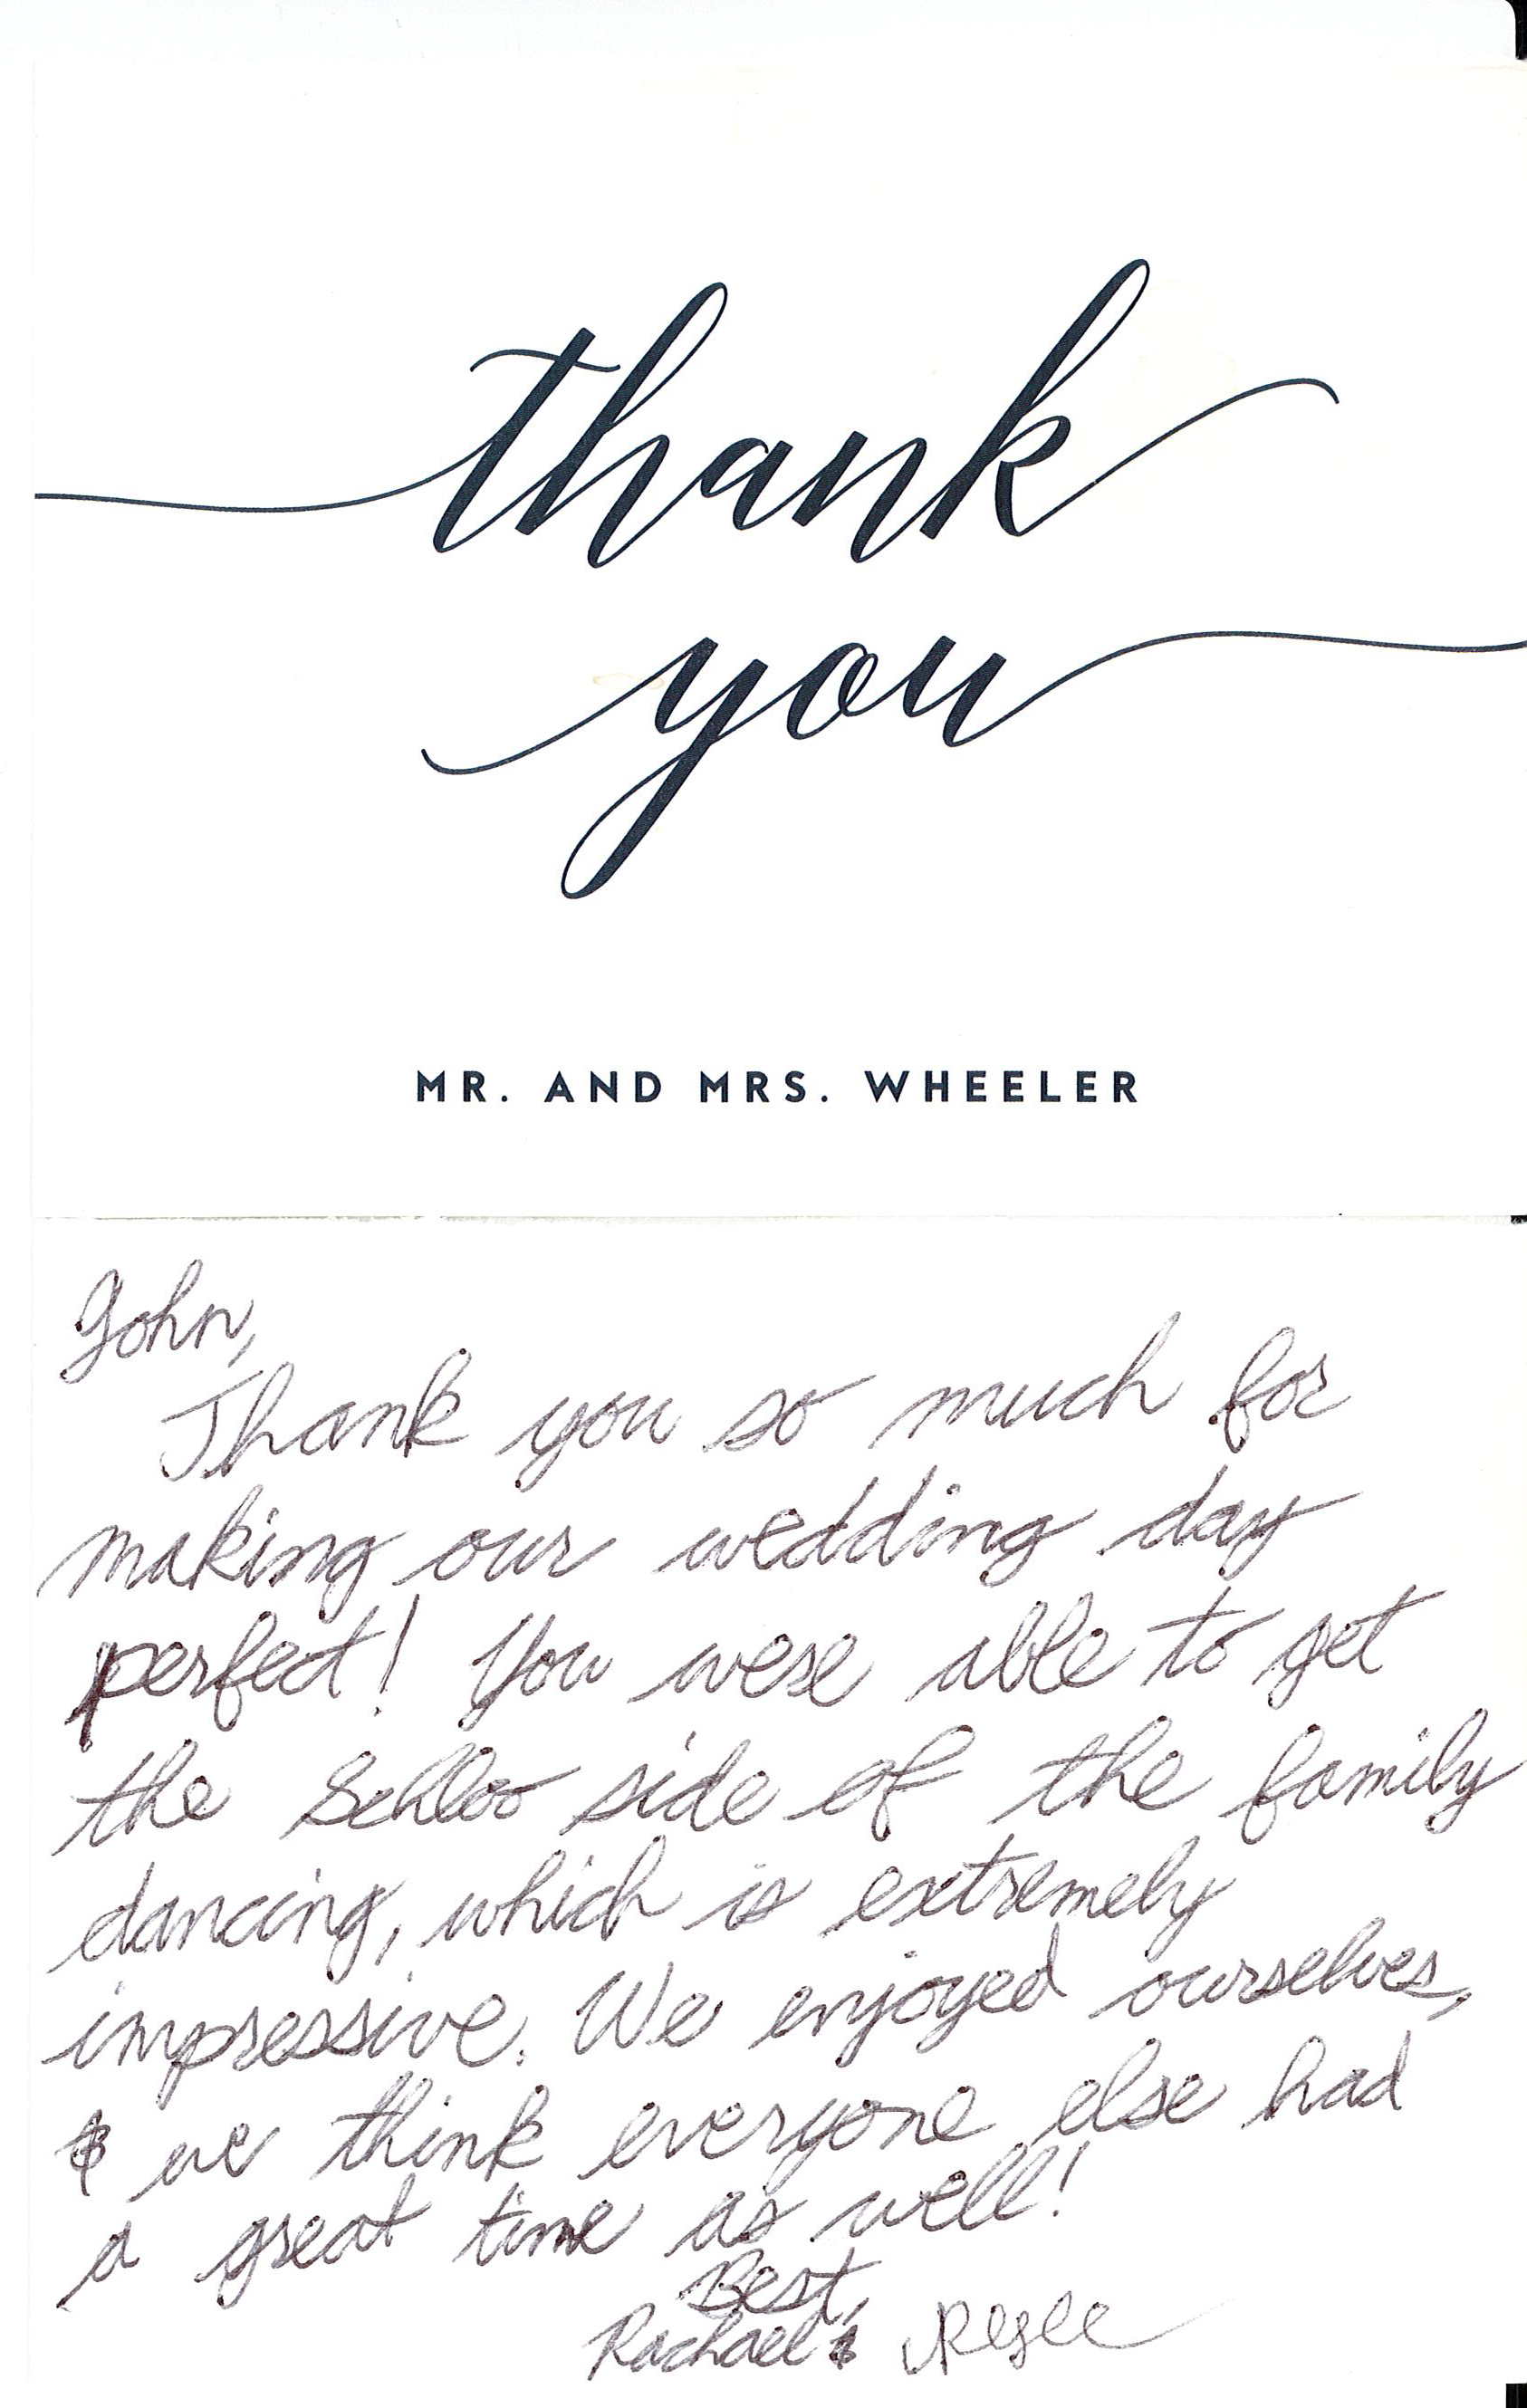 thank
you
MR. AND MRS. WHEELER
John,
Thank you so much for
making our wedding day
perfect! You were able to get
the side of the family
dancing, which is extremely
impressive. We enjoyed ourselves,
& we think everyone else had
a great time as well!
Best,
Rachael &